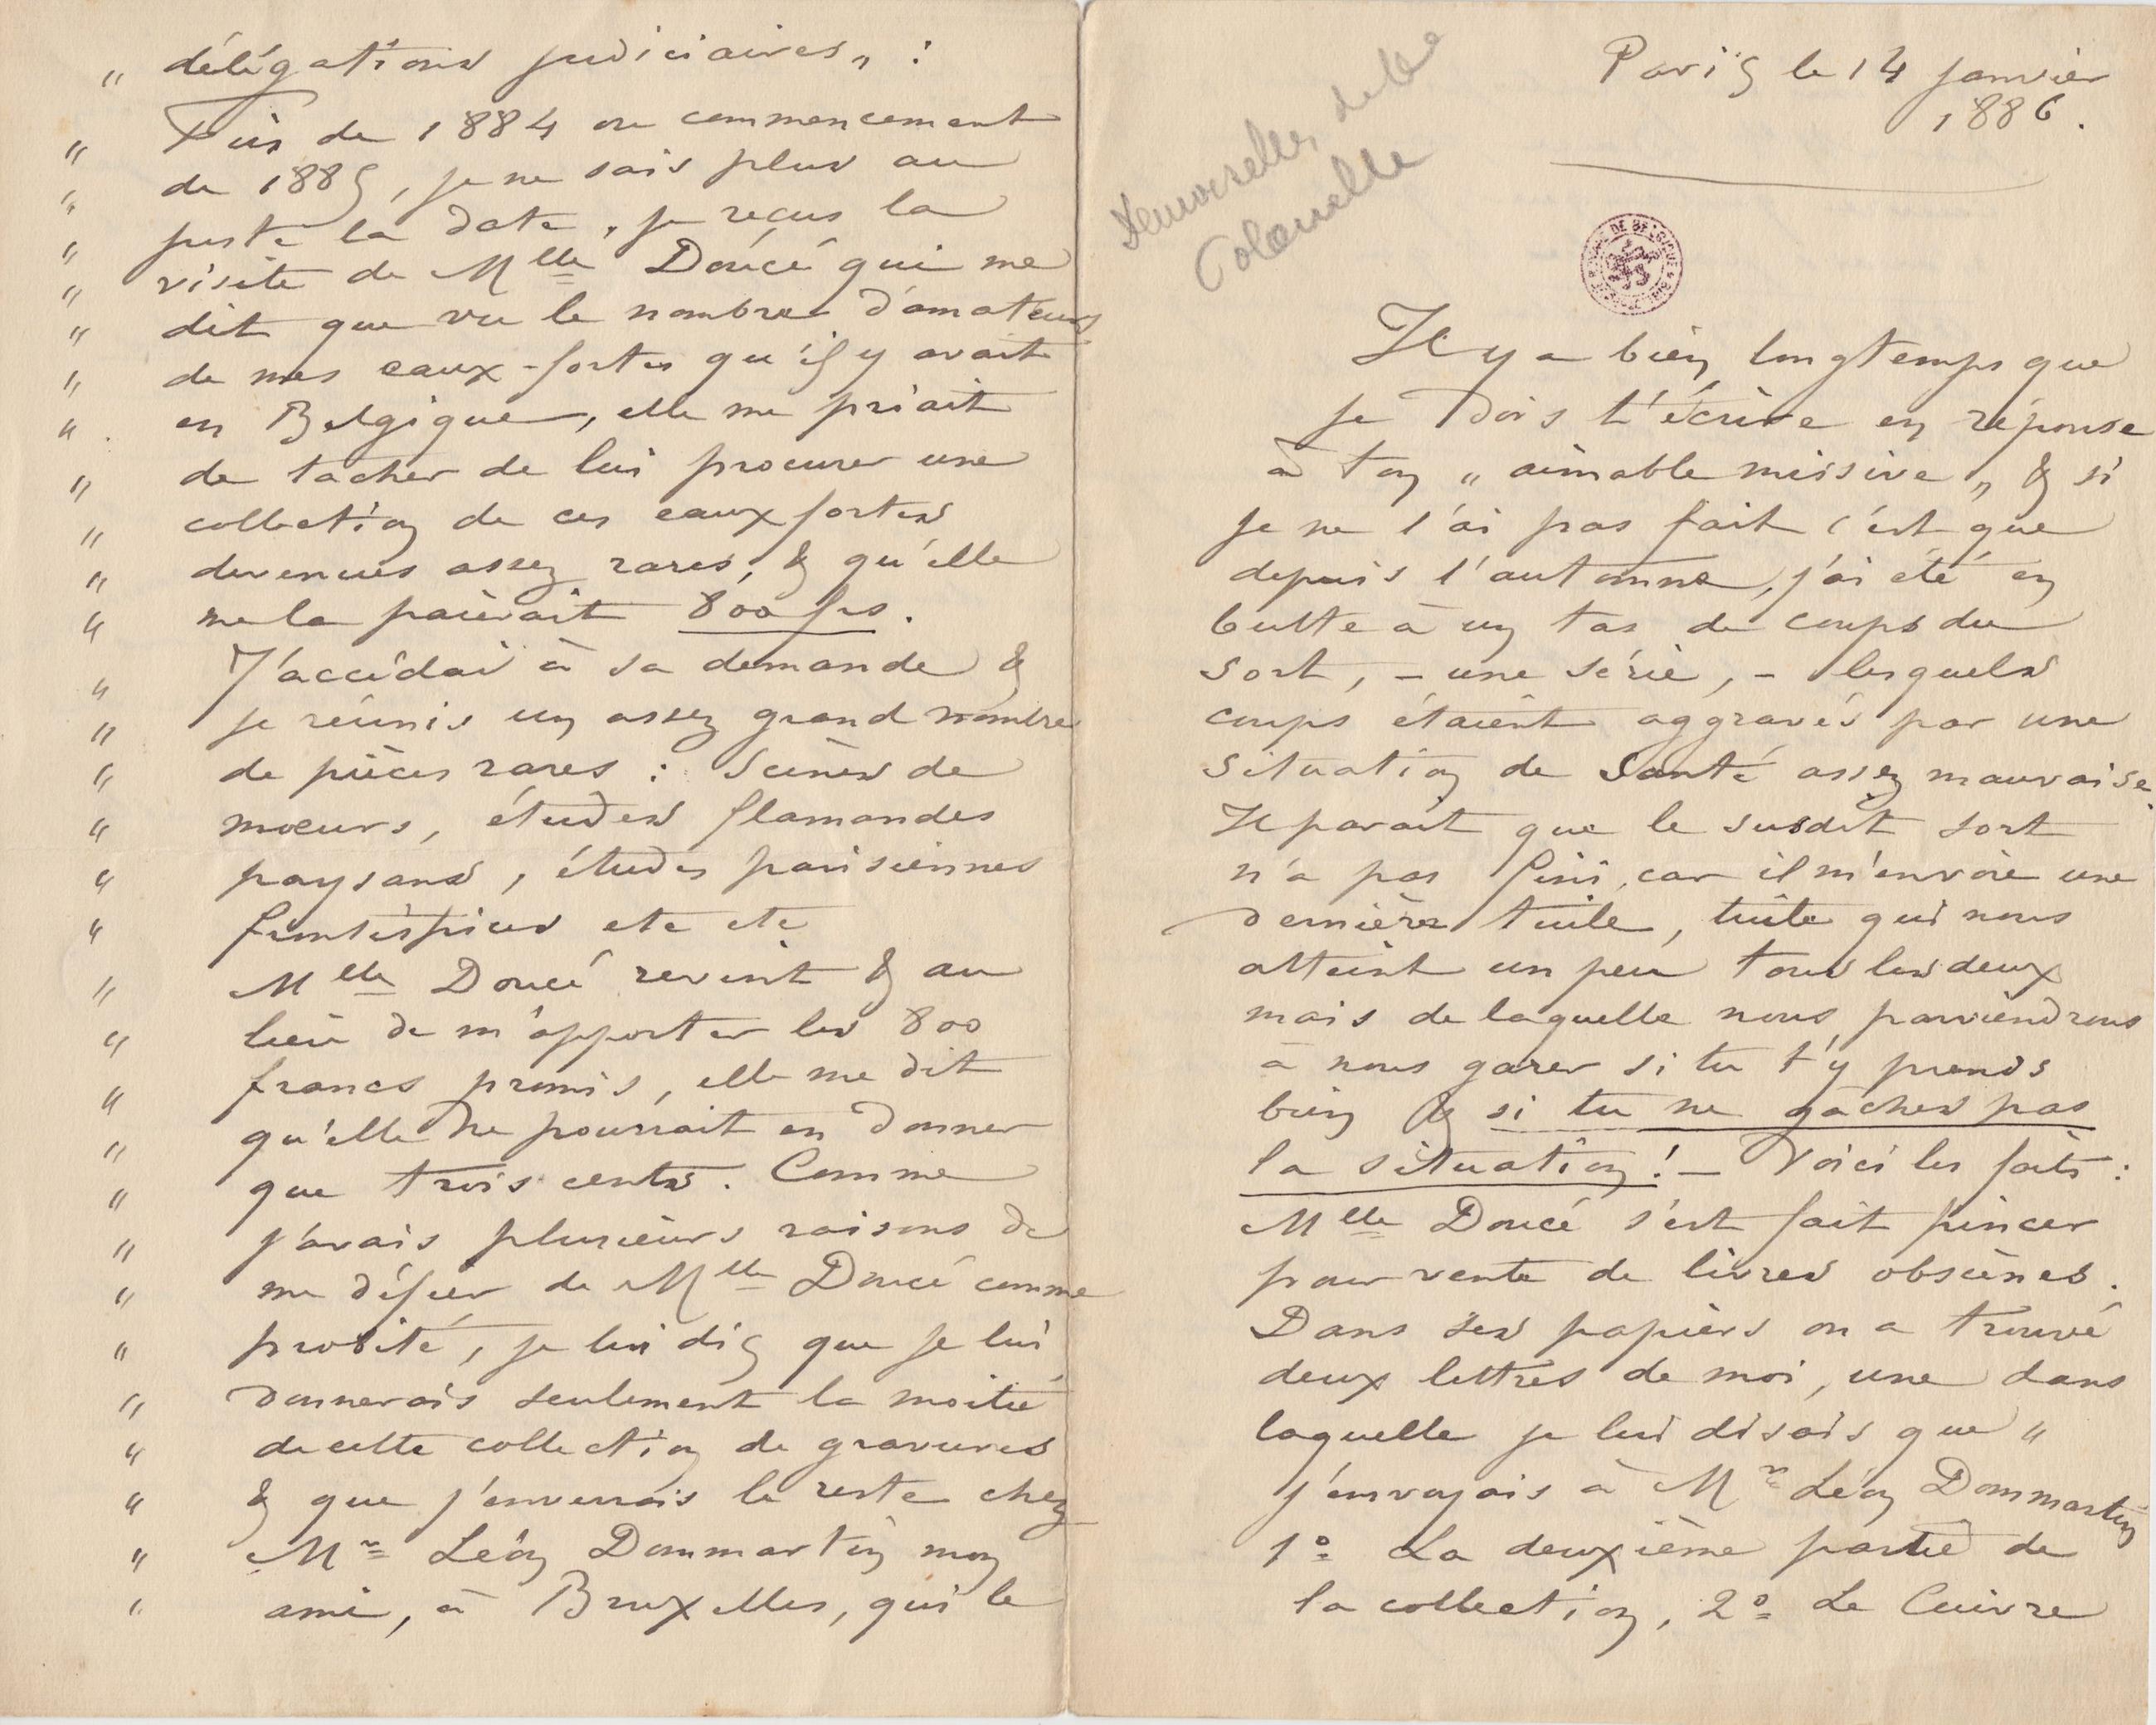 Paris le 14 janvier
1886.
de la
DE BELGIQUE
Il y a bien longtemps que
je dois t'écrire en réponse
à ton „ aimable missive „ & si
je ne l'ai pas fait c'est que
depuis l'automne, j'ai été en
butte à un tas de coups du
sort, – une série, – lesquels
coups étaient aggravés par une
situation de santé assez mauvaise.
Il parait que le susdit sort
n'a pas fini, car il m'envoie une
dernière tuile, tuile qui nous
atteint un peu tous les deux
mais de laquelle nous parviendrons
à nous garer si tu t'y prends
bien & si tu ne gaches pas
la situation! – Voici les faits :
Mlle Doucé s'est fait pincer
pour vente de livres obscènes.
Dans ses papiers on a trouvé
deux lettres de moi, une dans
laquelle je lui disais que „
j'envoyais à Mr Léon Dommartin
1o La deuxième partie de
la collection, 2o Le Cuivre
„ délégations judiciaires„ :
„ Fin de 1884 ou commencement
„ de 1885, je ne sais plus au
„ juste la date, je reçus la
„ visite de Mlle Doucé qui me
„ dit que vu le nombre d'amateurs
„ de mes eaux-fortes qu'il y avait
„ en Belgique, elle me priait
„ de tacher de lui procurer une
„ collection de ces eaux fortes
„ devenues assez rares, & qu'elle
„ me la paierait 800 frs.
„ J'accédai à sa demande &
„ je réunis un assez grand nombre
„ de pièces rares : Scènes de
„ mœurs, études flamandes
„ paysans, études parisiennes
„ frontispices etc etc
„ Mlle Doucé revint & au
„ lieu de m'apporter les 800
„ francs promis, elle me dit
„ qu'elle ne pourrait en donner
„ que trois cents. Comme
„ j'avais plusieurs raisons de
„ me défier de Mlle Doucé comme
„ probité, je lui dis que je lui
„ donnerais seulement la moitié
„ de cette collection de gravures
„ & que j'enverrais le reste chez
„ Mr Léon Dommartin mon
„ ami, à Bruxelles, qui le